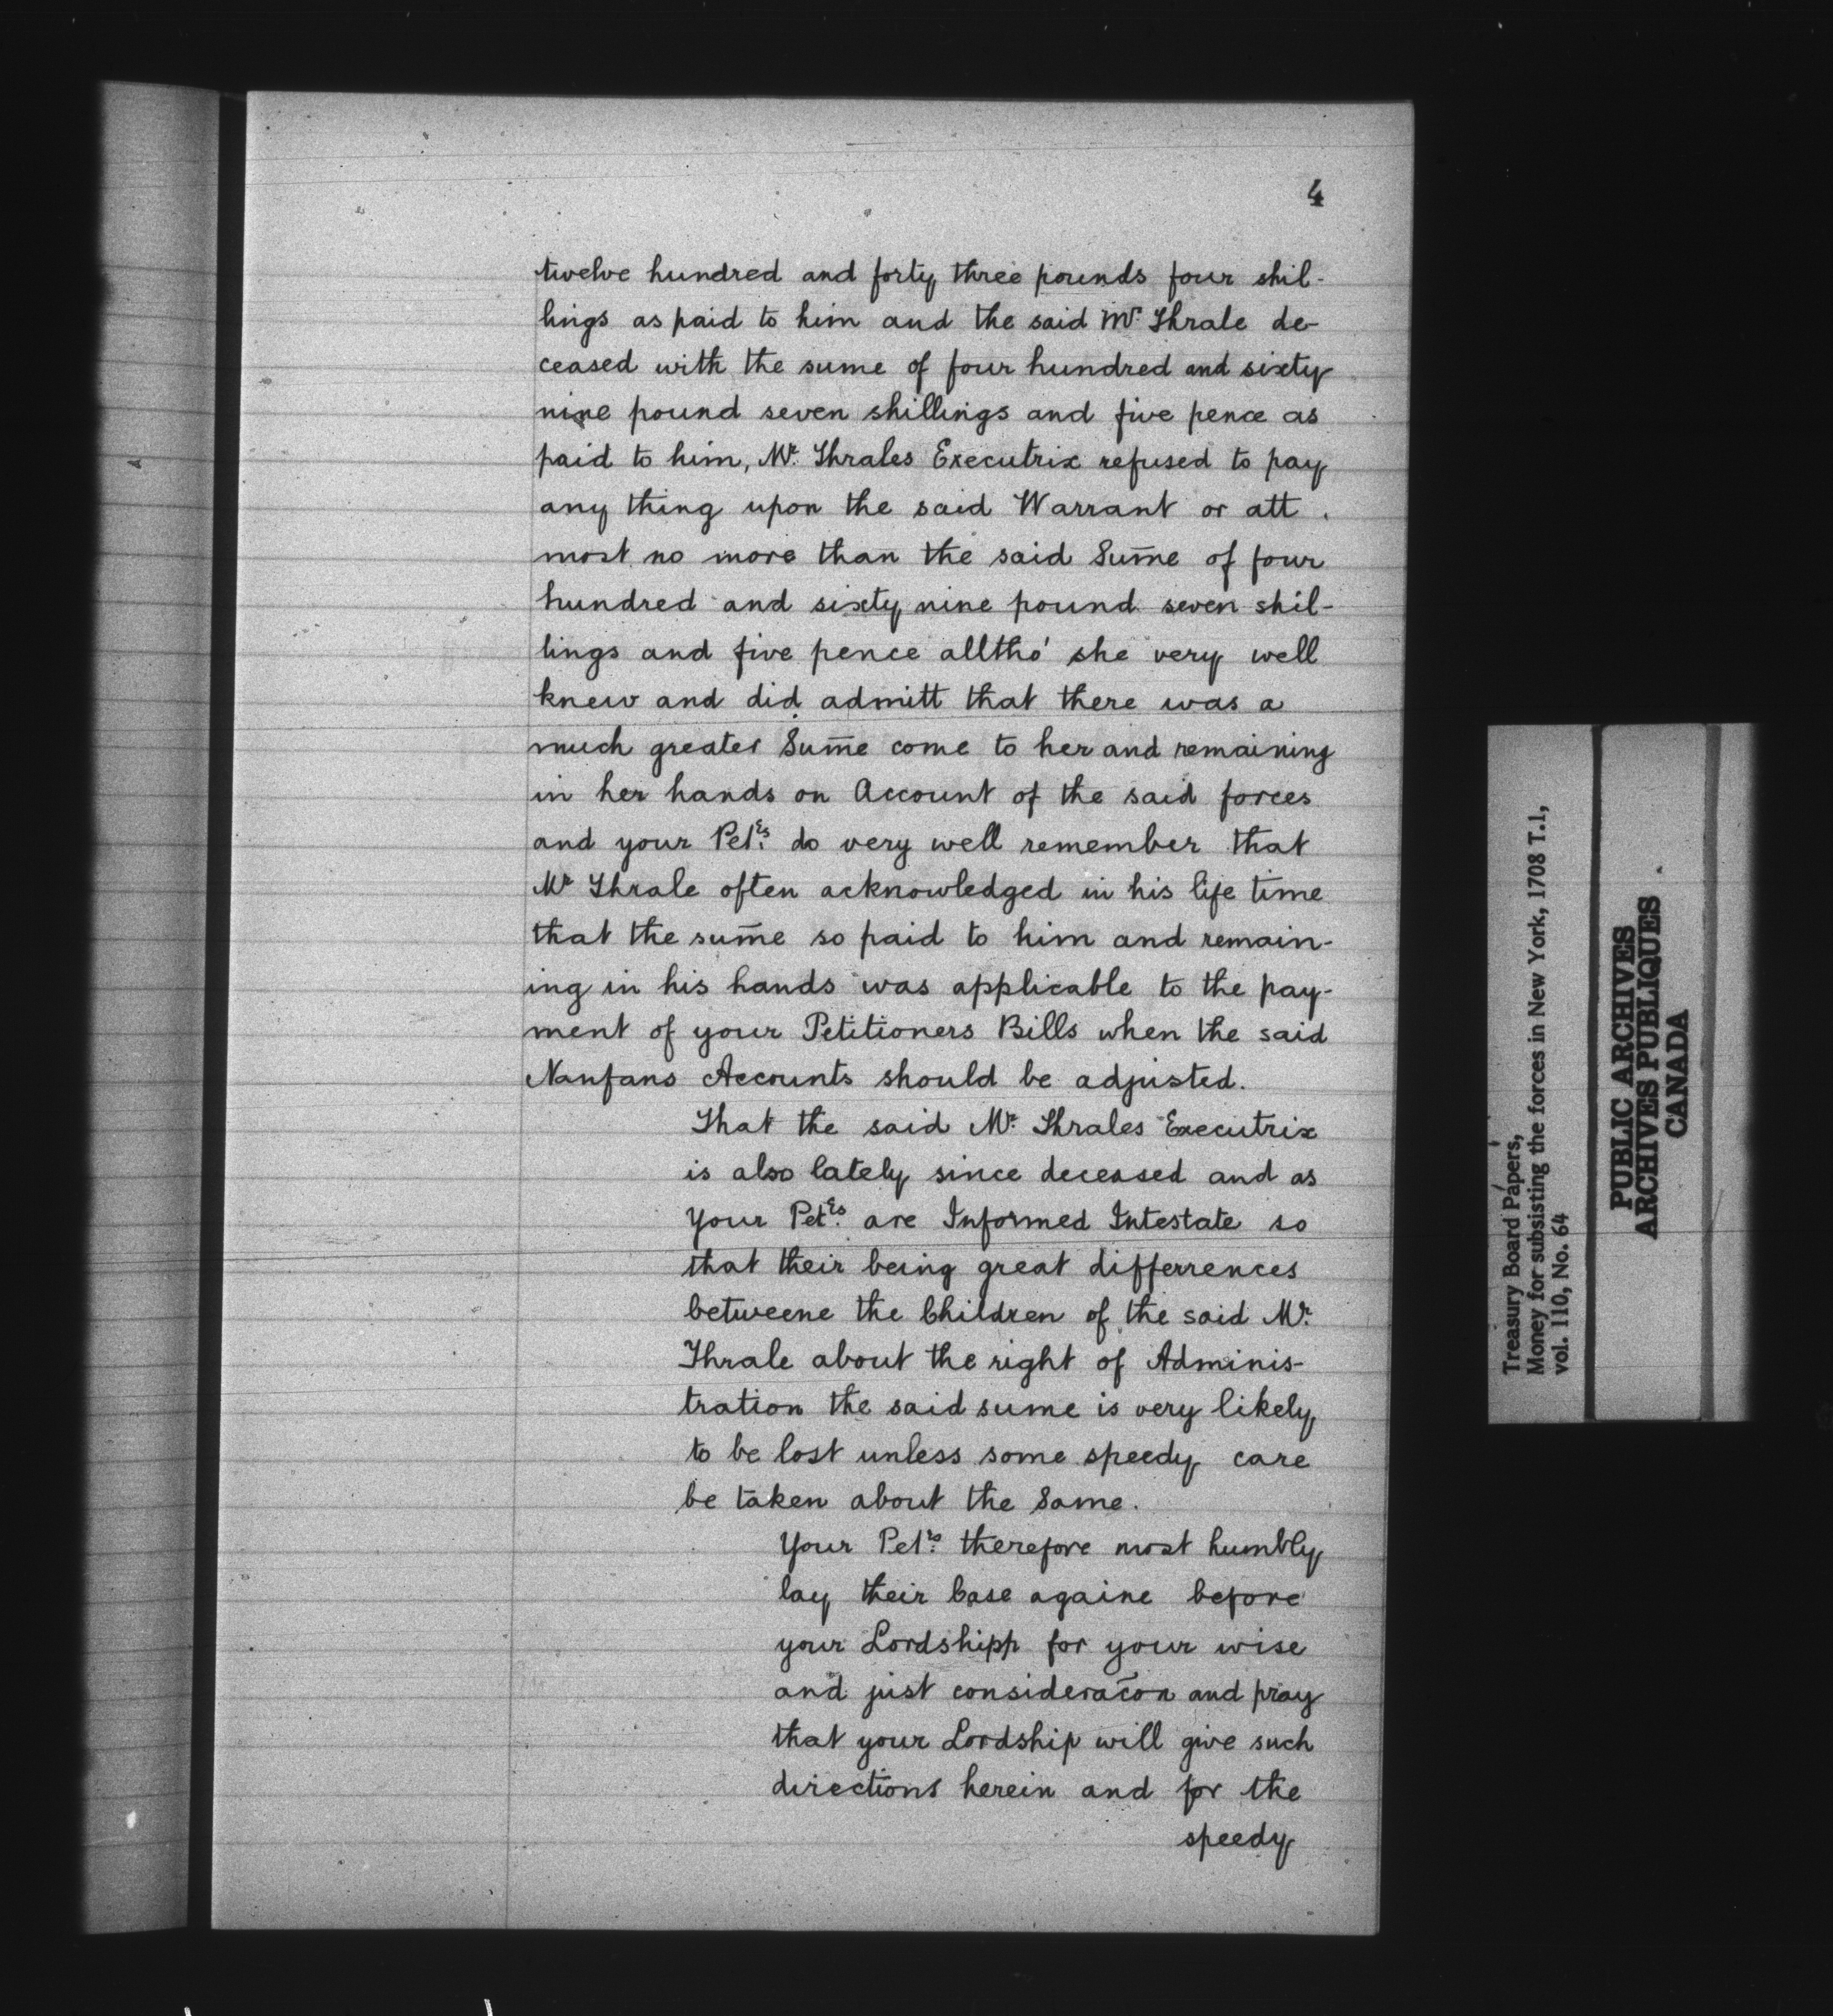 4
twelve hundred and forty three pounds four shil-
lings as paid to him and the said Mr. Thrale de-
ceased with the sume of four hundred and sixty
nine pound seven shillings and five pence as
paid to him, Mr. Thrales Executrix refused to pay
any thing upon the said Warrant or att
most no more than the said Sum̄e of four
hundred and sixty nine pound seven shil-
lings and five pence alltho' she very well
knew and did admitt that there was a
much greater Sum̄e come to her and remaining
in her hands on Account of the said forces
and your Petrs. do very well remember that
Mr Thrale often acknowledged in his life time
that the sum̄e so paid to him and remain-
ing in his hands was applicable to the pay-
ment of your Petitioners Bills when the said
Nanfans Accounts should be adjusted.
That the said Mr. Thrales Executrix
is also lately since deceased and as
Your Petrs. are Informed Intestate so
that their being great differrences
betweene the Children of the said Mr.
Thrale about the right of Adminis-
tration the said sume is very likely
to be lost unless some speedy care
be taken about the Same.
Your Petrs. therefore most humbly
lay their Case againe before
your Lordshipp for your wise
and just consideracōn and pray
that your Lordship will give such
directions herein and for the
speedy
Treasury Board Papers,
Money for subsisting the forces in New York, 1708 T.1,
vol. 110, No. 64
PUBLIC ARCHIVES
ARCHIVES PUBLIQUES
CANADA